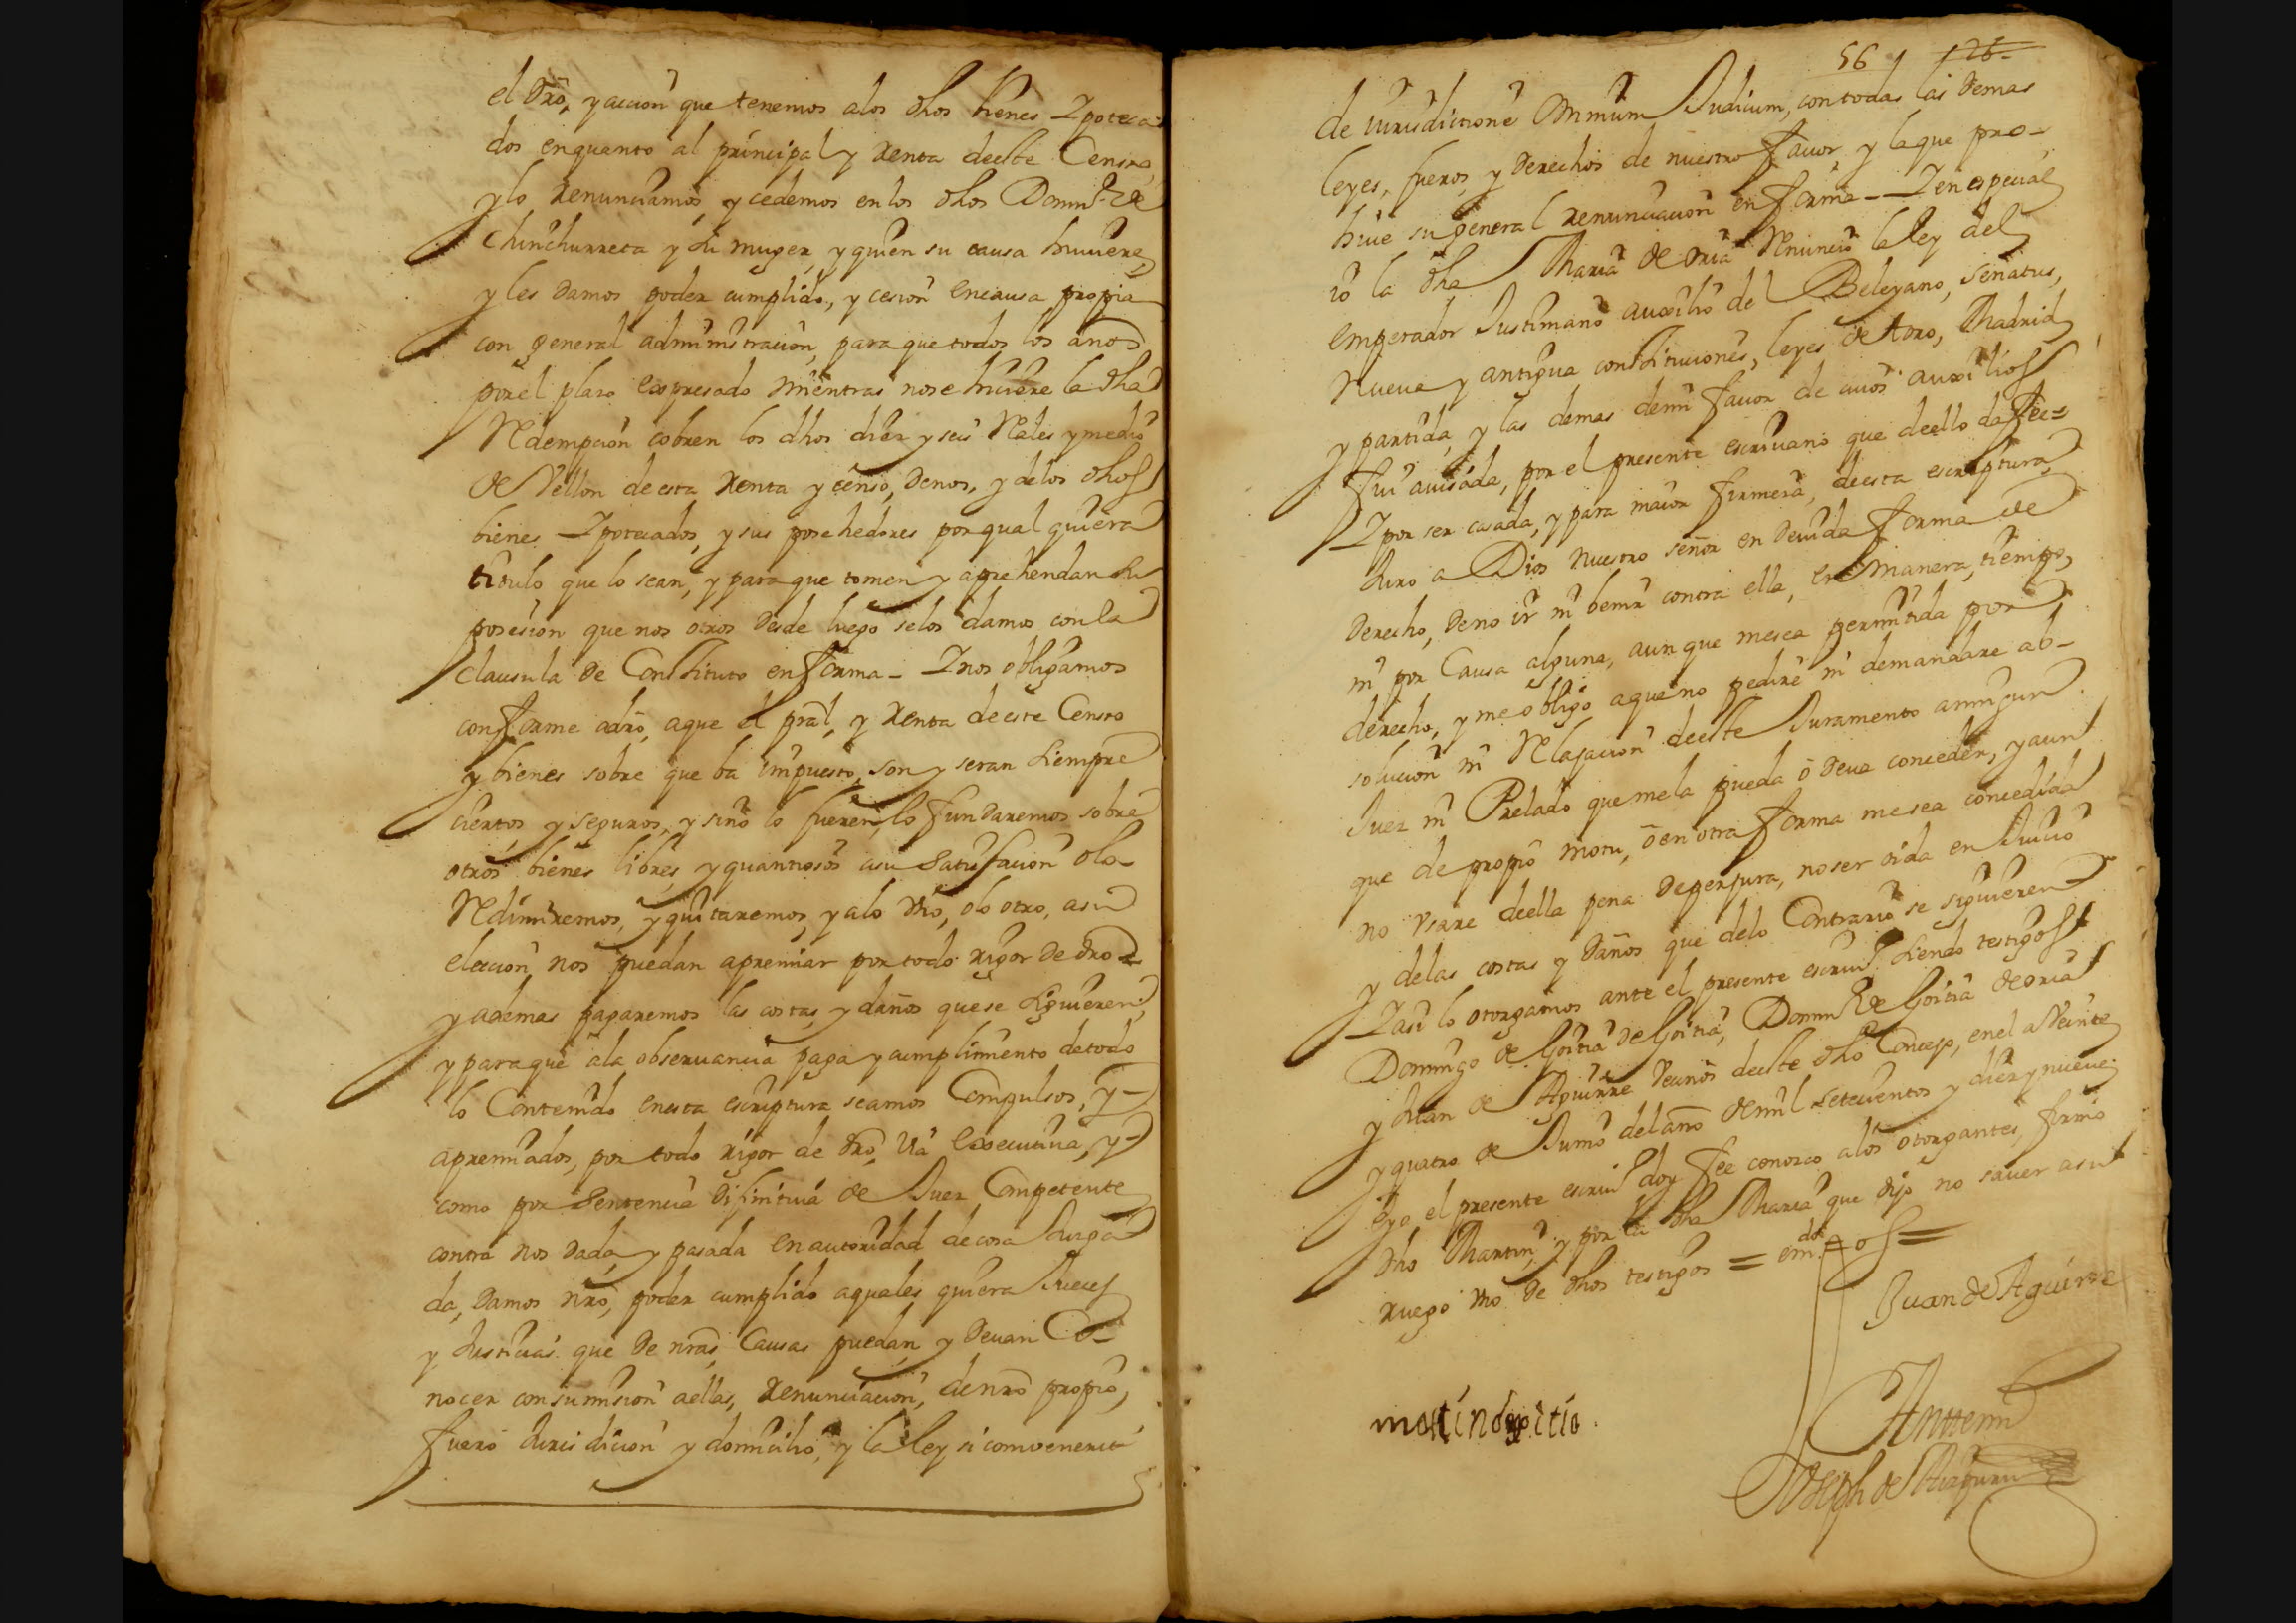 el dro, y accion que tenemos a los dhos bienes Ypoteca-
dos enquanto al principal y renta deeste Censo,
y lo renunciamos, y cedemos en los dhos Domin.º de
Chinchurreta y su muger, y quien su causa huuiere,
y les damos poder cumplido, y cesion en causa propia
con general administracion, para que todos los años
por el plazo expresado mientras no se hiciere la dha
Redempcion cobren los dhos diez y seis Reales y medio
de Vellon de esta renta y censo, de nos, y de los dhos
bienes Ypotecados, y sus posehedores por qual quiera
titulo que lo sean, y para que tomen y aprehendan su
posesion que nos otros desde luego se los damos con la
clausula de Constituto en forma - Y nos obligamos
conforme a dro, a que el pral, y renta de este Censo
y bienes sobre que ba impuesto, son y seran siempre
ciertos y seguros, y sino lo fueren lo fundaremos sobre
otros bienes libres, y quantiosos a su satisfacion o lo
Redimiremos, y quitaremos, y a lo vno, o lo otro, a su
eleccion nos puedan apremiar por todo rigor de dro
y ademas pagaremos las costas y daños que se siguieren;
y para que a la obseruancia paga y cumplimento de todo
lo Contenido en esta escriptura seamos Compulsos, y
apremiados, por todo rigor de dro, via executiua, y
como por Sentencia difinitiua de Juez Competente
contra nos dada, y pasada en autoridad de cosa Juzga
da, damos nro, poder cumplido a quales quiera Jueces
y Justicias que de nras, Causas puedan, y deuan Co-
nocer con sumision a ellas, renunciacion, de nro propio,
fuero Jurisdicion y domicilio, y la ley si convenerit
56 126
de Jurisdictione Omnium Judicum, con todas las demas
leyes, fueros, y derechos de nuestro fauor, y la que pro-
hiue su general renunciacion en forma - Y en especial
io la dha Maria de Oria Renuncio la ley del
emperador Justiniano auxilio del Beleyano, senatus,
Nueua y antigua constituciones, leyes de toro, Madrid
y partida, y las demas de mi fauor de cuios auxilios
fui auisada, por el presente escriuano que de ello da fee =
Y por ser casada, y para maior firmeza, de esta escriptura
Juro a Dios Nuestro señor en deuida forma de
derecho, de no ir ni benir contra ella, en manera, tiempo,
ni por Causa alguna, aun que me sea permitida por
derecho, y me obligo a que no pedire ni demandare ab-
solucion ni Relajacion de este Juramento a ningun
Juez ni Prelado que me la pueda o deua conceder, y aun
que de propio motu, o en otra forma me sea concedida
no vsare de ella pena de perjura, no ser oida en Juicio
y de las costas y daños que de lo Contrario se siguieren
Y asi lo otorgamos ante el presente escriuº siendo testigos
Domingo de Goitia de Goitia, Domin.º de Goitia de Oria
y Juan de Aguirre Vecinos de este dho Concejo, en el a Veinte
y quatro de Junio del año de mil setecientos y diez y nueue
e yo el presente escriuº doy fee conozco a los otorgantes, firmo
dho Martin, y por la dha Maria que dijo no sauer a su
ruego vno de dhos testigos = emdº os =
Juan de Aguirre
martin de goitia
Ante mi
Joseph de